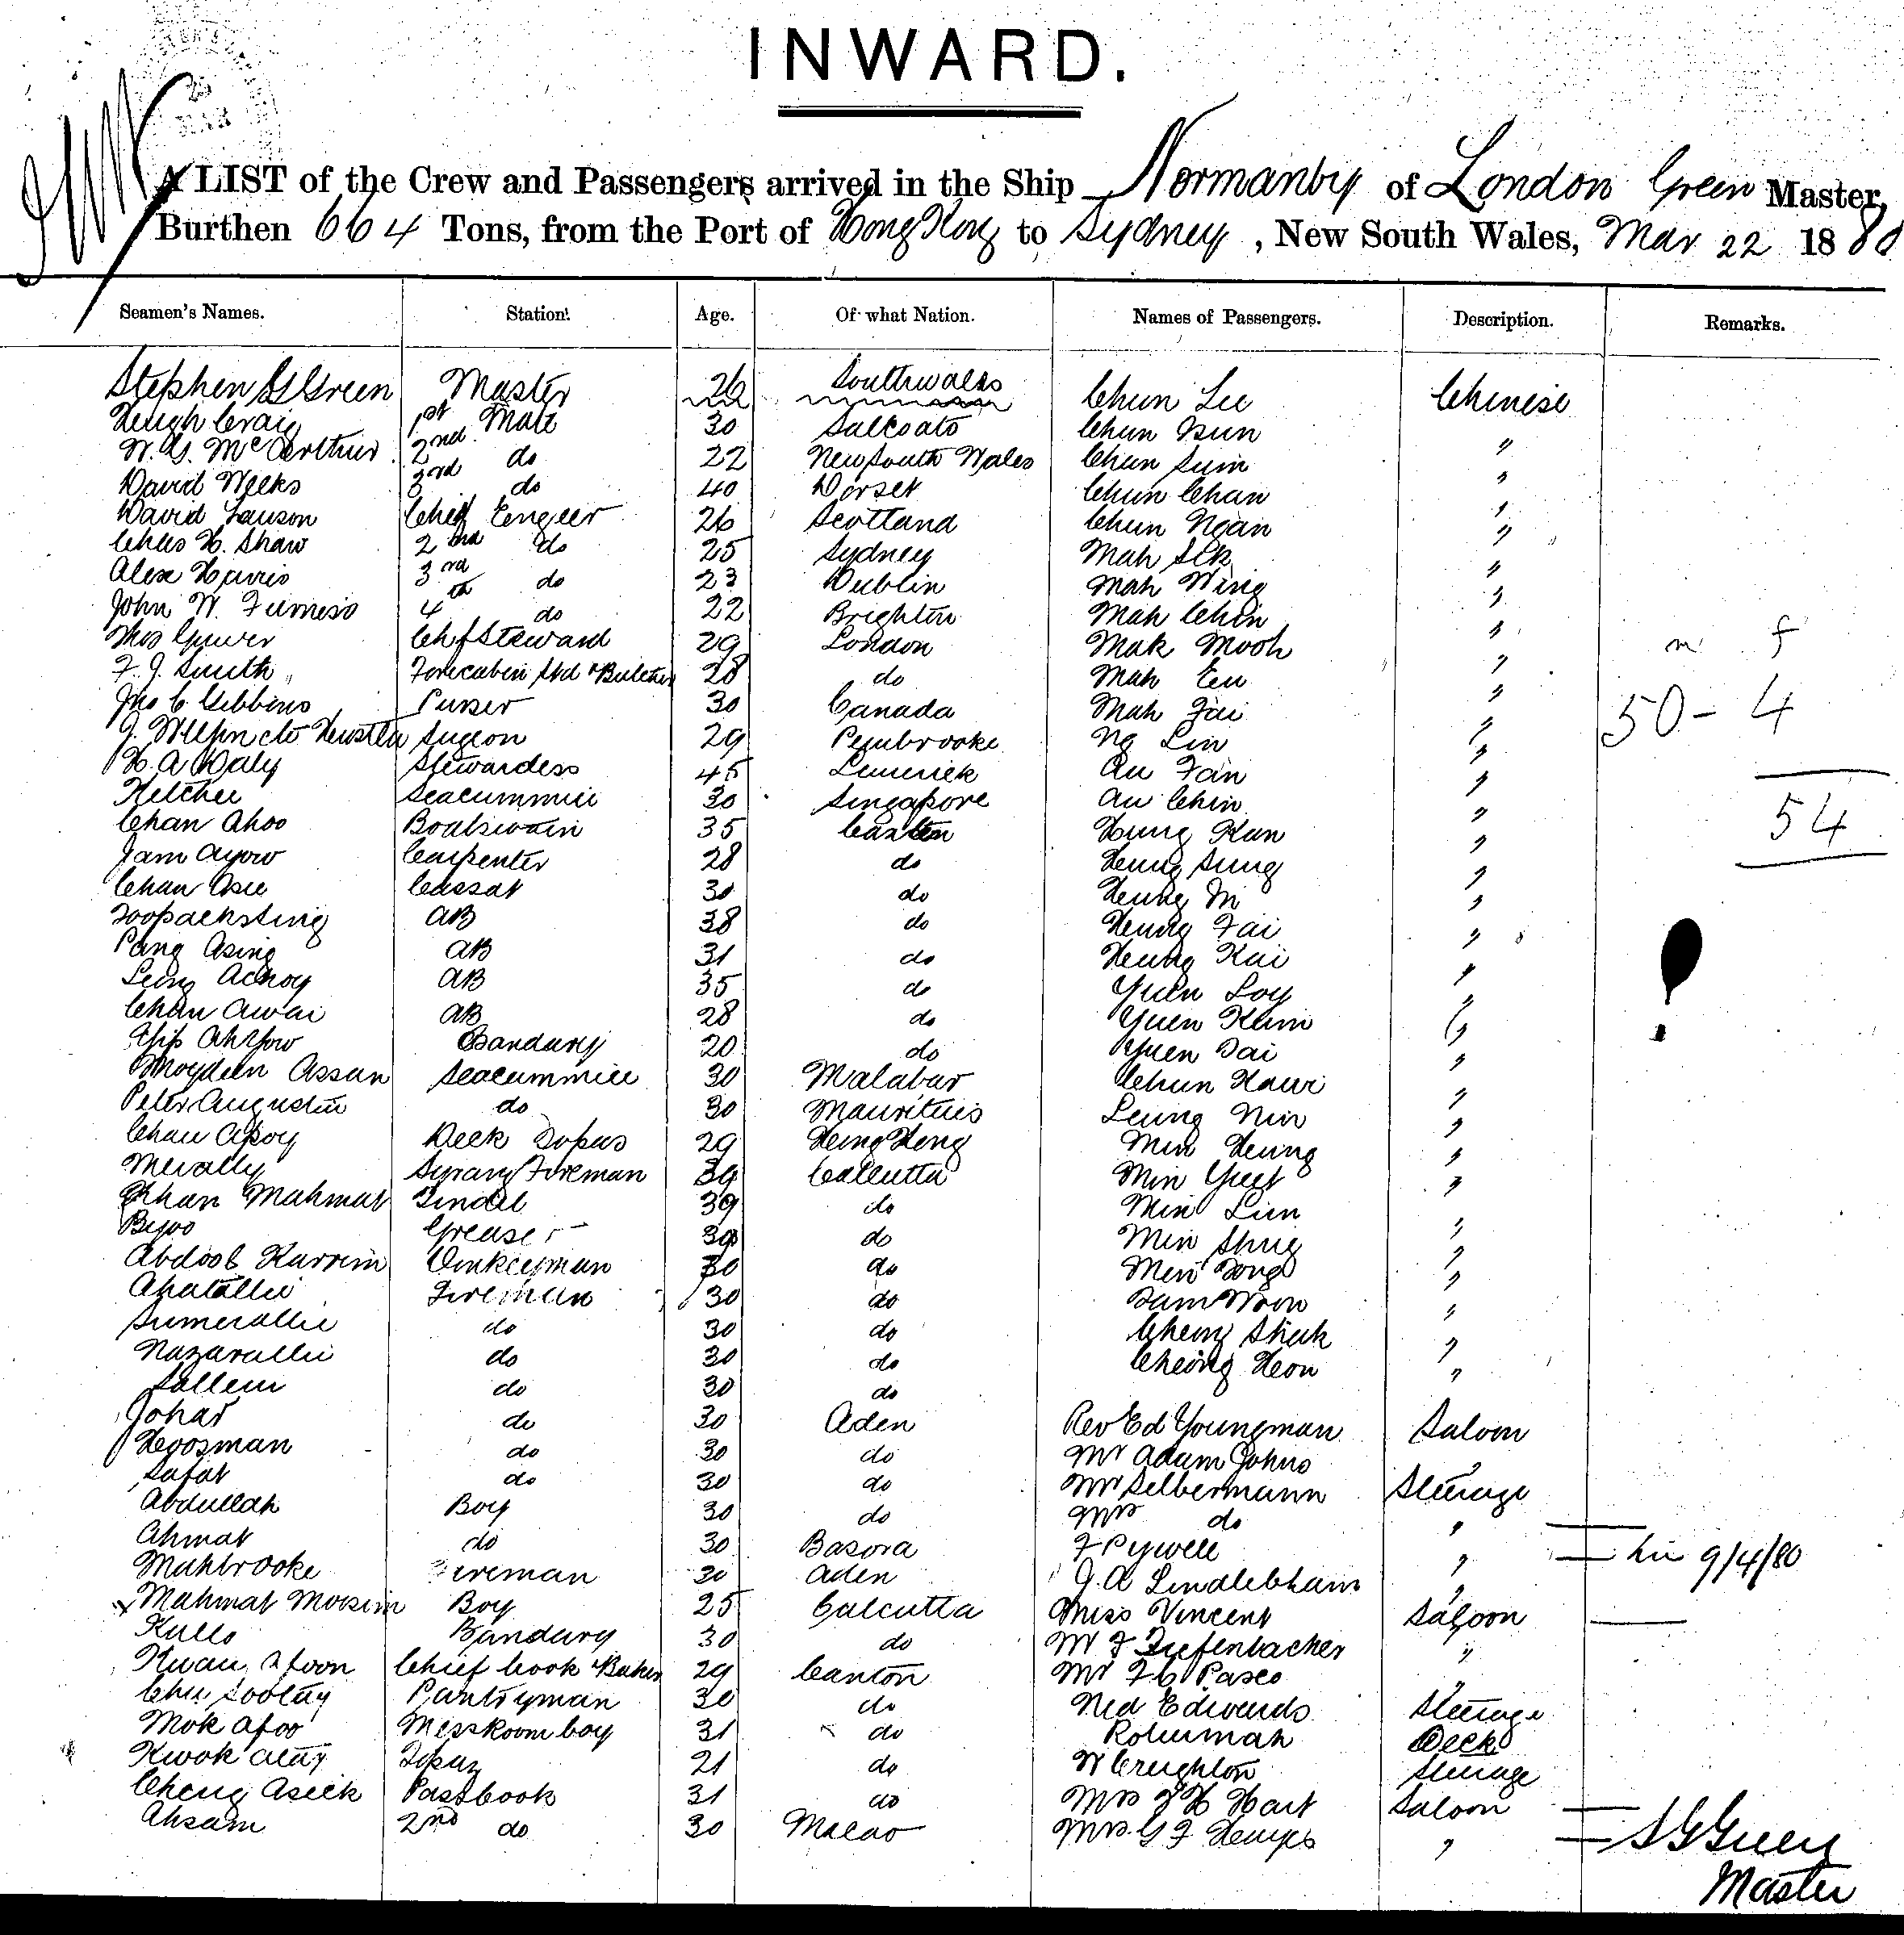 INWARD.
A LIST of the Crew and Passengers arrived in the Ship Normanby of London Green Master,
Burthen 664 Tons, from the Port of Hong Kong to Sydney, New South Wales, Mar 22 1880
Seamen's Names. Station. Age. Of what Nation. Names of Passengers. Description. Remarks.
Stephen G Green Master 26 Southwales Chun Lee Chinese
Hugh Craig 1st Mate 30 Saltcoats Chun Bun "
W. G. McArthur 2nd do 22 New South Wales Chun Sum "
David Weeks 3rd do 40 Dorset Chun Chan "
David Lawson Chief Engeer 26 Scotland Chun Ngan "
Chas H. Shaw 2nd do 25 Sydney Mah Sek "
Alex Harris 3rd do 23 Dublin Mah Wing "
John W. Furness 4th do 22 Brighton Mah Chin "
Thos Chf Steward 29 London Mak Mooh " m f
F. J. Smith Forecabin Std & Butcher 28 do Mah Eeu "
Jno C Gibbins Purser 30 Canada Mah Fai " 50 - 4
J. Surgeon 29 Pembrooke Ng Lin "
H. A Daly Stewardess 45 Limerick Au Fan "
Ketchee Seacunnie 30 Singapore Au Chin " 54
Chan Ahoo Boatswain 35 Canton Hung Kan "
Jam Ayow Carpenter 28 do Heung Sung "
Chan Asee Cassat 30 do Heung "
AB 38 do Heung Fai "
Pang Asing AB 31 do Heung Kai "
Leung Achoy AB 35 do Yuen Loy "
Chan Awai AB 28 do Yuen Kum "
Yip Bandary 20 do Yuen Dai "
Moydeen Assan Seacunnie 30 Malabar Chun Hawi "
Peter Augustin do 30 Mauritius Leung Nin "
Chau Apoy Deck Topas 29 Hong Kong Min Heung "
Merally Syrang Fireman 39 Calcutta Min Yuet "
Khan Mahmat Tindel 39 do Min Lin "
Bejoo Greaser 39 do Min Shug "
Abdool Karrim Donkeyman 30 do Men Tong "
Ahatallie Fireman 30 do Bam Woon "
Sumerallie do 30 do Cheong Shuk "
Nazarallie do 30 do Cheong Heon "
Sallem do 30 do
Johar do 30 Aden Rev Ed Youngman Saloon
Hoosman do 30 do Mr Adam Johns "
Safar do 30 do Mr Selbermann Steerage
Abdullah Boy 30 do Mrs do "
Ahmat do 30 Basora F Pywell " 9/4/80
Mahbrooke Fireman 30 Aden J. A Lindlebham "
Mahmat Moosim Boy 25 Calcutta Miss Vincent Saloon
Kullo Bandary 30 do Mr F Tiefenbacher "
Kwan Afoon Chief Cook & Baker 29 Canton Mr F C Pasco "
Chu Sootay Pantryman 30 do Ned Edwards Steerage
Mok Afoo Messroom boy 31 do Rohimah Deck
Kwok Atay Topaz 21 do W Creighton Steerage
Cheng Aseek Passbook 31 do Mrs F H Hart Saloon
Ahsam 2nd do 30 Macao Mrs. G F "
S G Green
Master